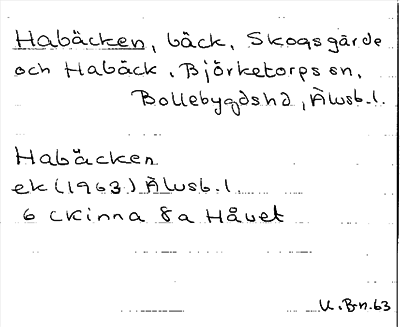 Habäcken, bäck, Skogsgärde
och Habäck, Björketorps sn,
Bollebygdshd, Älvsb.l.
Habäcken
ek (1963) Älvsb.l.
6 C Kinna 8a Håvet
U.Bn.63